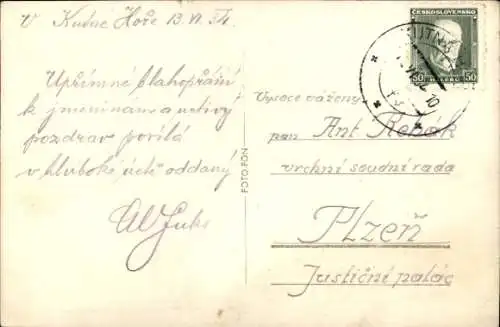 V Kutné Hoře 13.VI.34.
Upřímné blahopřání
k jmeninám a uctivý
pozdrav posílá
v hluboké úctě oddaný
ČESKOSLOVENSKO
50 50
FOTO-FON
Vysoce vážený
pan Ant. Řehák
vrchní soudní rada
Plzeň
Justiční palác